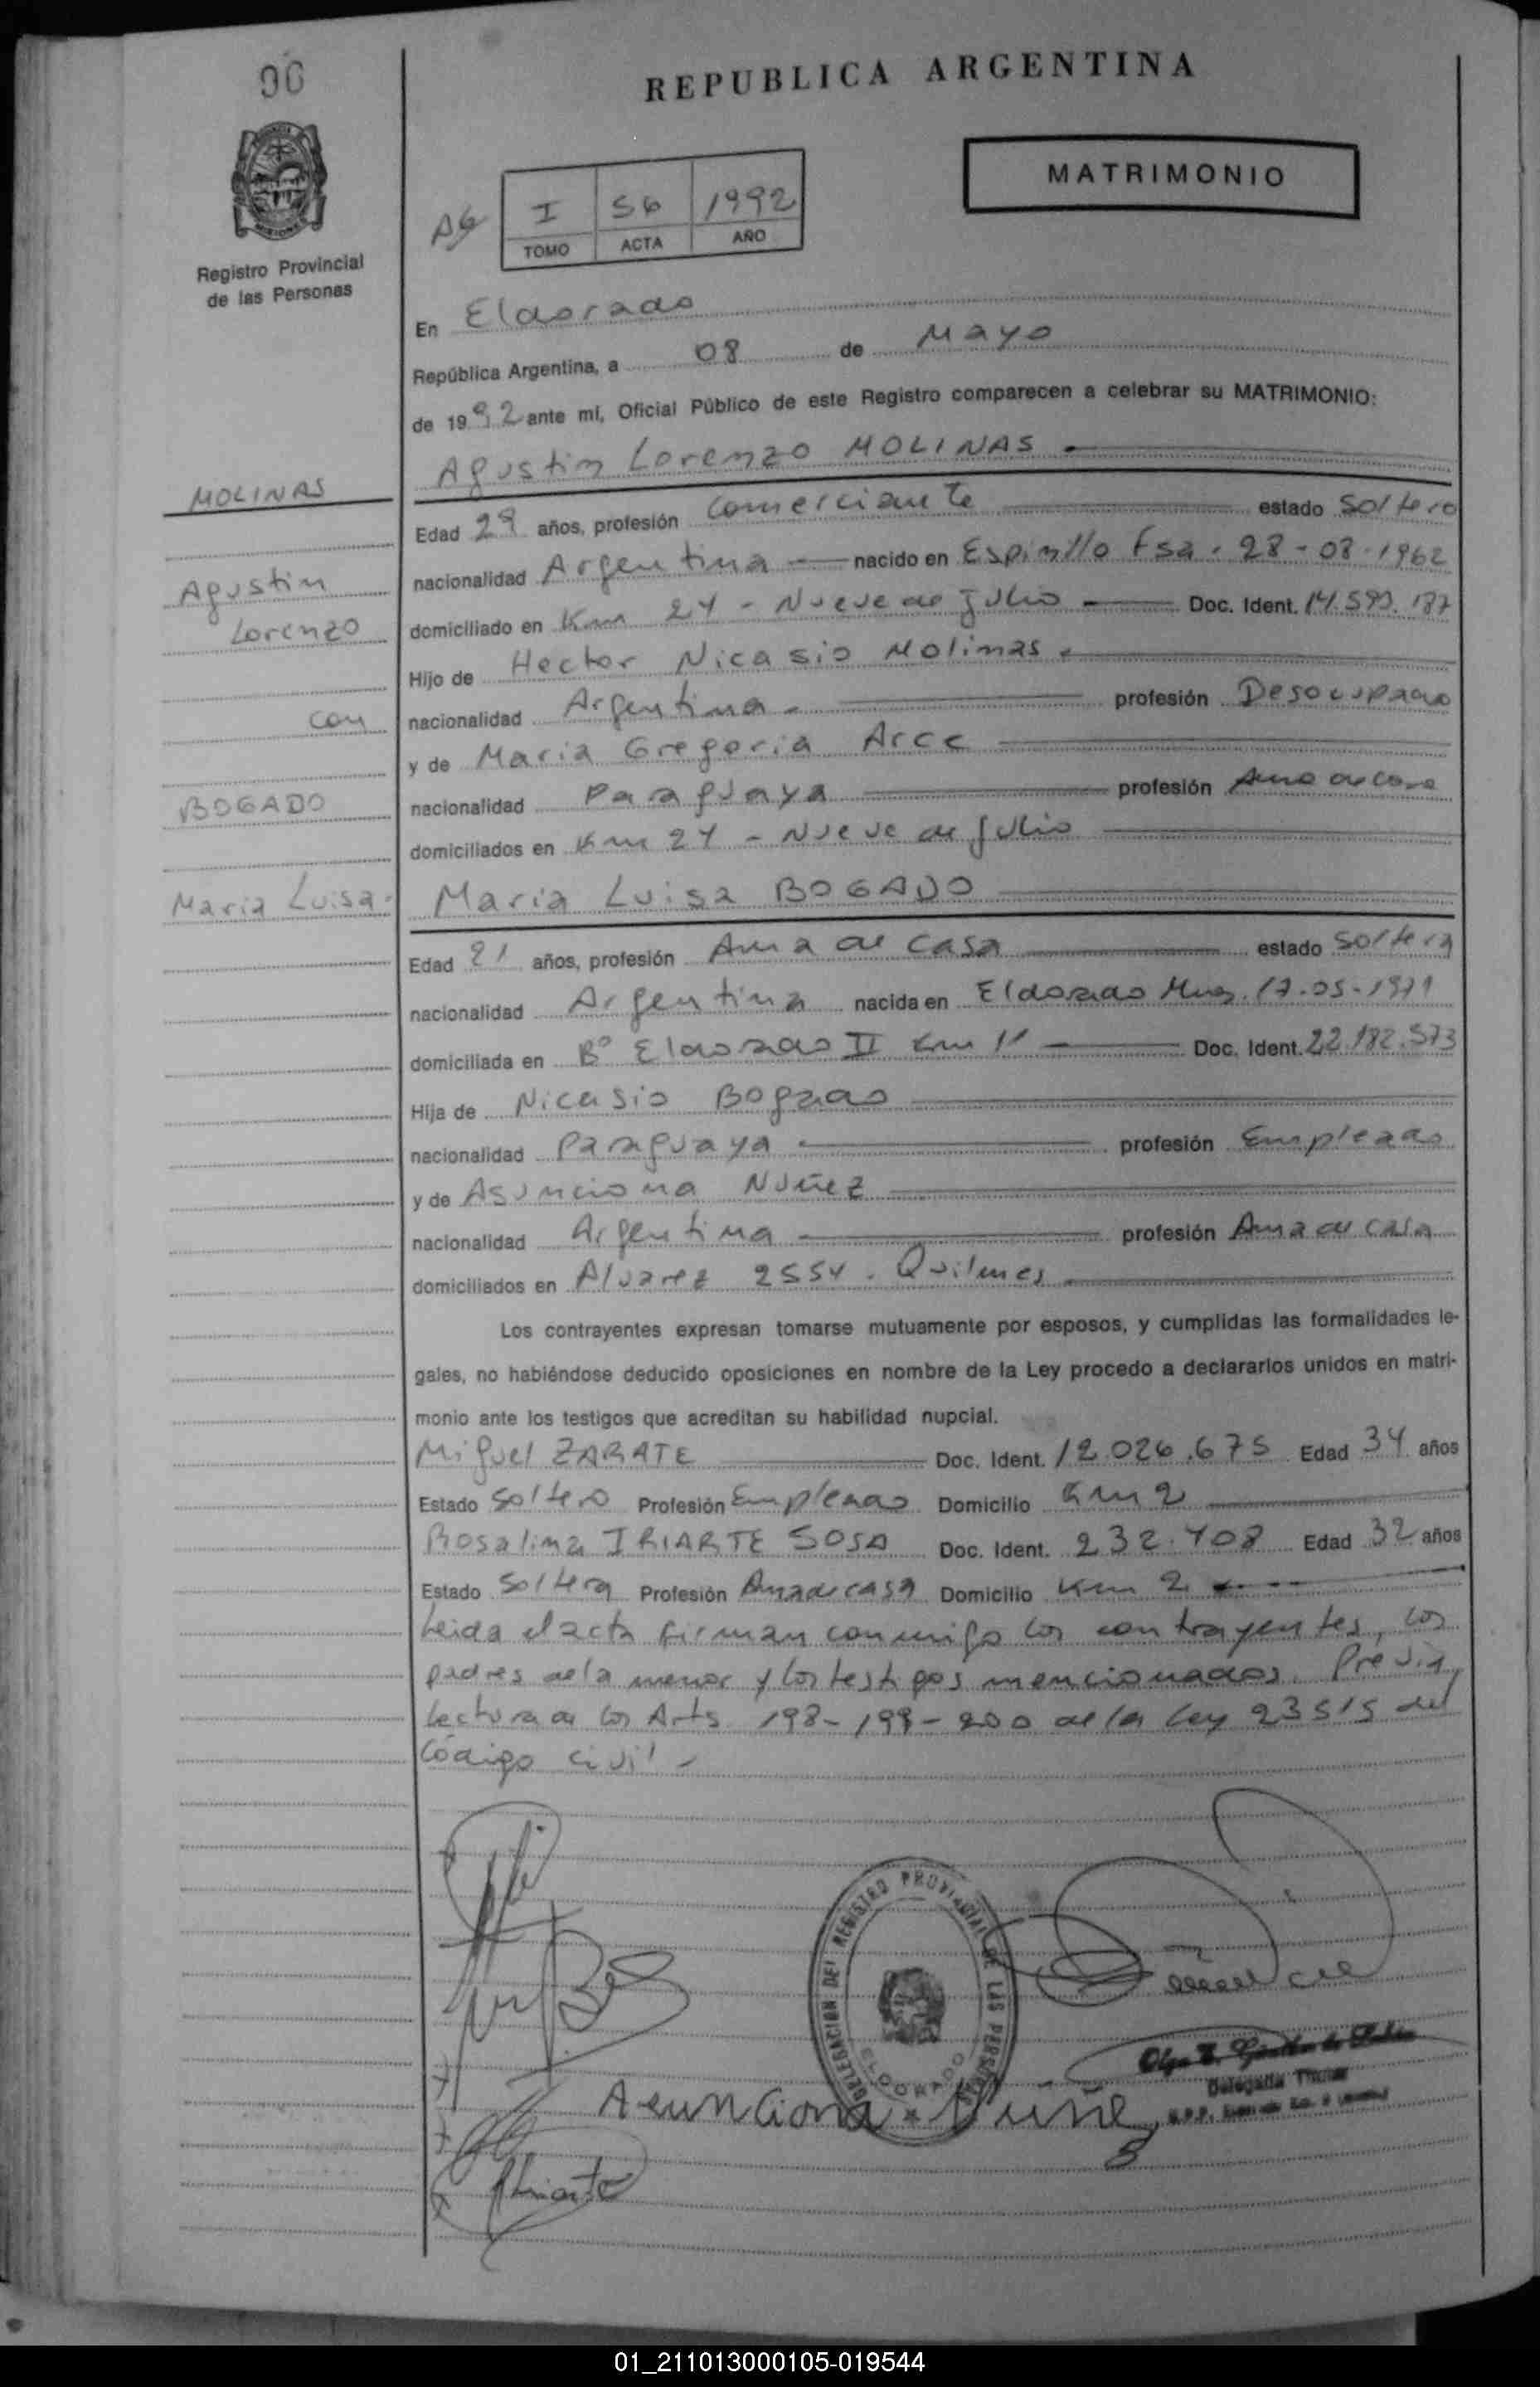 96
REPUBLICA ARGENTINA
MATRIMONIO
I 56 1992
TOMO ACTA AÑO
MISIONES
Registro Provincial
de las Personas
En Eldorado
República Argentina, a 08 de Mayo
de 1992 ante mí, Oficial Público de este Registro comparecen a celebrar su MATRIMONIO:
Agustin Lorenzo MOLINAS
MOLINAS
Agustin
Lorenzo
con
BOGADO
Maria Luisa
Edad 29 años, profesión Comerciante estado Soltero
nacionalidad Argentina nacido en Espinillo Fsa. 28-08-1962
domiciliado en Km 24 - Nueve de Julio Doc. Ident. 14.593.187
Hijo de Hector Nicasio Molinas
nacionalidad Argentina profesión Desocupado
y de Maria Gregoria Arce
nacionalidad Paraguaya profesión Ama de Casa
domiciliados en Km 24 - Nueve de Julio
Maria Luisa BOGADO
Edad 21 años, profesión Ama de casa estado Soltera
nacionalidad Argentina nacida en Eldorado Mnes. 17-05-1971
domiciliada en Bº Eldorado II Km 11 Doc. Ident. 22.182.573
Hija de Nicasio Bogado
nacionalidad Paraguaya profesión Empleado
y de Asunciona Nuñez
nacionalidad Argentina profesión Ama de casa
domiciliados en Alvarez 2554. Quilmes
Los contrayentes expresan tomarse mutuamente por esposos, y cumplidas las formalidades le-
gales, no habiéndose deducido oposiciones en nombre de la Ley procedo a declararlos unidos en matri-
monio ante los testigos que acreditan su habilidad nupcial.
Miguel ZARATE Doc. Ident. 12.026.675 Edad 34 años
Estado Soltero Profesión Empleado Domicilio Km 2
Rosalina IRIARTE SOSA Doc. Ident. 232.408 Edad 32 años
Estado Soltera Profesión Ama de casa Domicilio Km 2
Leida el acta firman conmigo los contrayentes, los
padres de la menor y los testigos mencionados. Previa
lectura de los Arts. 198-199-200 de la Ley 23515 del
Código Civil -
DELEGACION DEL REGISTRO PROVINCIAL DE LAS PERSONAS
ELDORADO
Asunciona Nuñez
Delegada Titular
Iriarte
01_211013000105-019544